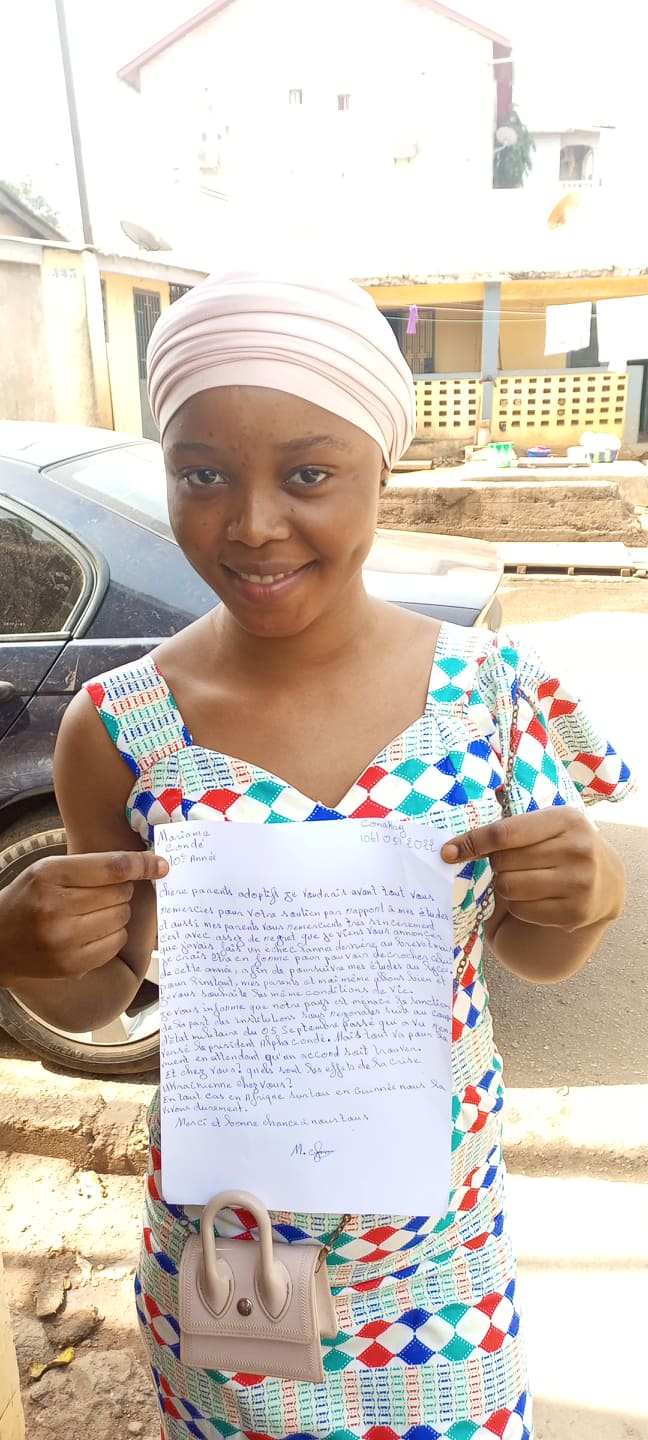 Mariama
Condé
10e Année
Conakry
06/05/2022
chère parents adoptif je voudrais avant tout vous
remercies pour votre soutien par rapport à mes études
et aussi mes parents vous remercient très sincèrement
c'est avec assez de regret que je viens vous annoncer
que j'avais fait un échec l'année dernière au brevet mais
je crois être en forme pour pouvoir decrocher
de cette année, afin de poursuivre mes études au lycée
pour l'instant, mes parents et moi même allons bien et
je vous souhaite les même conditions de vie.
Je vous informe que notre pays est menacé de sanction
de la part des institutions sous regionales suite au coup
d'état militaire du 05 Septembre passé qui a vu ren
versé le président Alpha condé. Mais tout va pour le
ment en attendant qu'un accord soit trouver.
Et chez vous? quels sont les effets de la crise
Ukrainienne chez vous?
En tout cas en Afrique surtou en Guinnée nous la
vivons durement.
Merci et bonne chance à nous tous
M. C
343